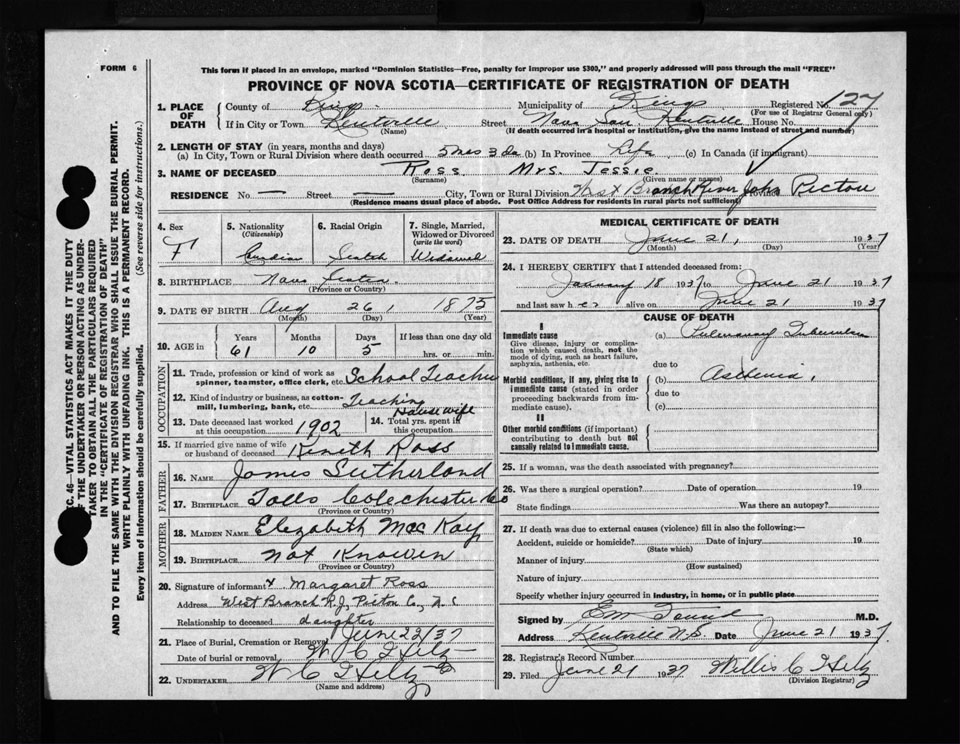 FORM 6
This form if placed in an envelope, marked "Dominion Statistics—Free, penalty for improper use $300," and properly addressed will pass through the mail "FREE"
PROVINCE OF NOVA SCOTIA—CERTIFICATE OF REGISTRATION OF DEATH
SEC. 46—VITAL STATISTICS ACT MAKES IT THE DUTY
OF THE UNDERTAKER OR PERSON ACTING AS UNDER-
TAKER TO OBTAIN ALL THE PARTICULARS REQUIRED
IN THE "CERTIFICATE OF REGISTRATION OF DEATH"
AND TO FILE THE SAME WITH THE DIVISION REGISTRAR WHO SHALL ISSUE THE BURIAL PERMIT.
WRITE PLAINLY WITH UNFADING INK. THIS IS A PERMANENT RECORD.
Every item of information should be carefully supplied. (See reverse side for instructions.)
1. PLACE OF DEATH County of Kings Municipality of Kings Registered No. 127
(For use of Registrar General only)
If in City or Town Kentville Street Nova San. Kentville House No.
(Name) (If death occurred in a hospital or institution, give the name instead of street and number)
2. LENGTH OF STAY (in years, months and days)
(a) In City, Town or Rural Division where death occurred 5 mos 3 da (b) In Province Life (c) In Canada (if immigrant)
3. NAME OF DECEASED Ross Mrs. Jessie
(Surname) (Given name or names)
RESIDENCE No. — Street — City, Town or Rural Division West Branch River John Pictou
(Residence means usual place of abode. Post Office Address for residents in rural parts not sufficient)
4. Sex F
5. Nationality (Citizenship) Canadian
6. Racial Origin Scotch
7. Single, Married, Widowed or Divorced (write the word) Widowed
8. BIRTHPLACE Nova Scotia
(Province or Country)
9. DATE OF BIRTH Aug 26, 1875
(Month) (Day) (Year)
10. AGE in Years 61 Months 10 Days 5 If less than one day old hrs. or min.
OCCUPATION
11. Trade, profession or kind of work as spinner, teamster, office clerk, etc. School Teacher
12. Kind of industry or business, as cotton-mill, lumbering, bank, etc. Teaching
Housewife
13. Date deceased last worked at this occupation 1902 14. Total yrs. spent in this occupation
15. If married give name of wife or husband of deceased Kenith Ross
FATHER
16. NAME James Sutherland
17. BIRTHPLACE Colechester Co
(Province or Country)
MOTHER
18. MAIDEN NAME Elezabeth MacKay
19. BIRTHPLACE Not Knowen
(Province or Country)
20. Signature of informant x Margaret Ross
Address West Branch R.J, Pictou Co,
Relationship to deceased daughter
21. Place of Burial, Cremation or Removal
Date of burial or removal June 22/37
W C Hiltz
22. UNDERTAKER W C Hiltz
(Name and address)
MEDICAL CERTIFICATE OF DEATH
23. DATE OF DEATH June 21, 1937
(Month) (Day)
24. I HEREBY CERTIFY that I attended deceased from:
January 18 1937 to June 21 1937
and last saw her alive on June 21 1937
CAUSE OF DEATH
I
Immediate cause (a) Pulmonary Tuberculosis
Give disease, injury or complication which caused death, not the mode of dying, such as heart failure, asphyxia, asthenia, etc.
due to
Morbid conditions, if any, giving rise to immediate cause (stated in order proceeding backwards from immediate cause).
(b) Asthenia,
due to
(c)
II
Other morbid conditions (if important) contributing to death but not causally related to immediate cause.
25. If a woman, was the death associated with pregnancy?
26. Was there a surgical operation? Date of operation 19
State findings Was there an autopsy?
27. If death was due to external causes (violence) fill in also the following:—
Accident, suicide or homicide? Date of injury 19
(State which)
Manner of injury
(How sustained)
Nature of injury
Specify whether injury occurred in industry, in home, or in public place
Signed by M.D.
Address Kentville N.S. Date June 21 1937
28. Registrar's Record Number
29. Filed June 21 1937 Willis C Hiltz
(Division Registrar)